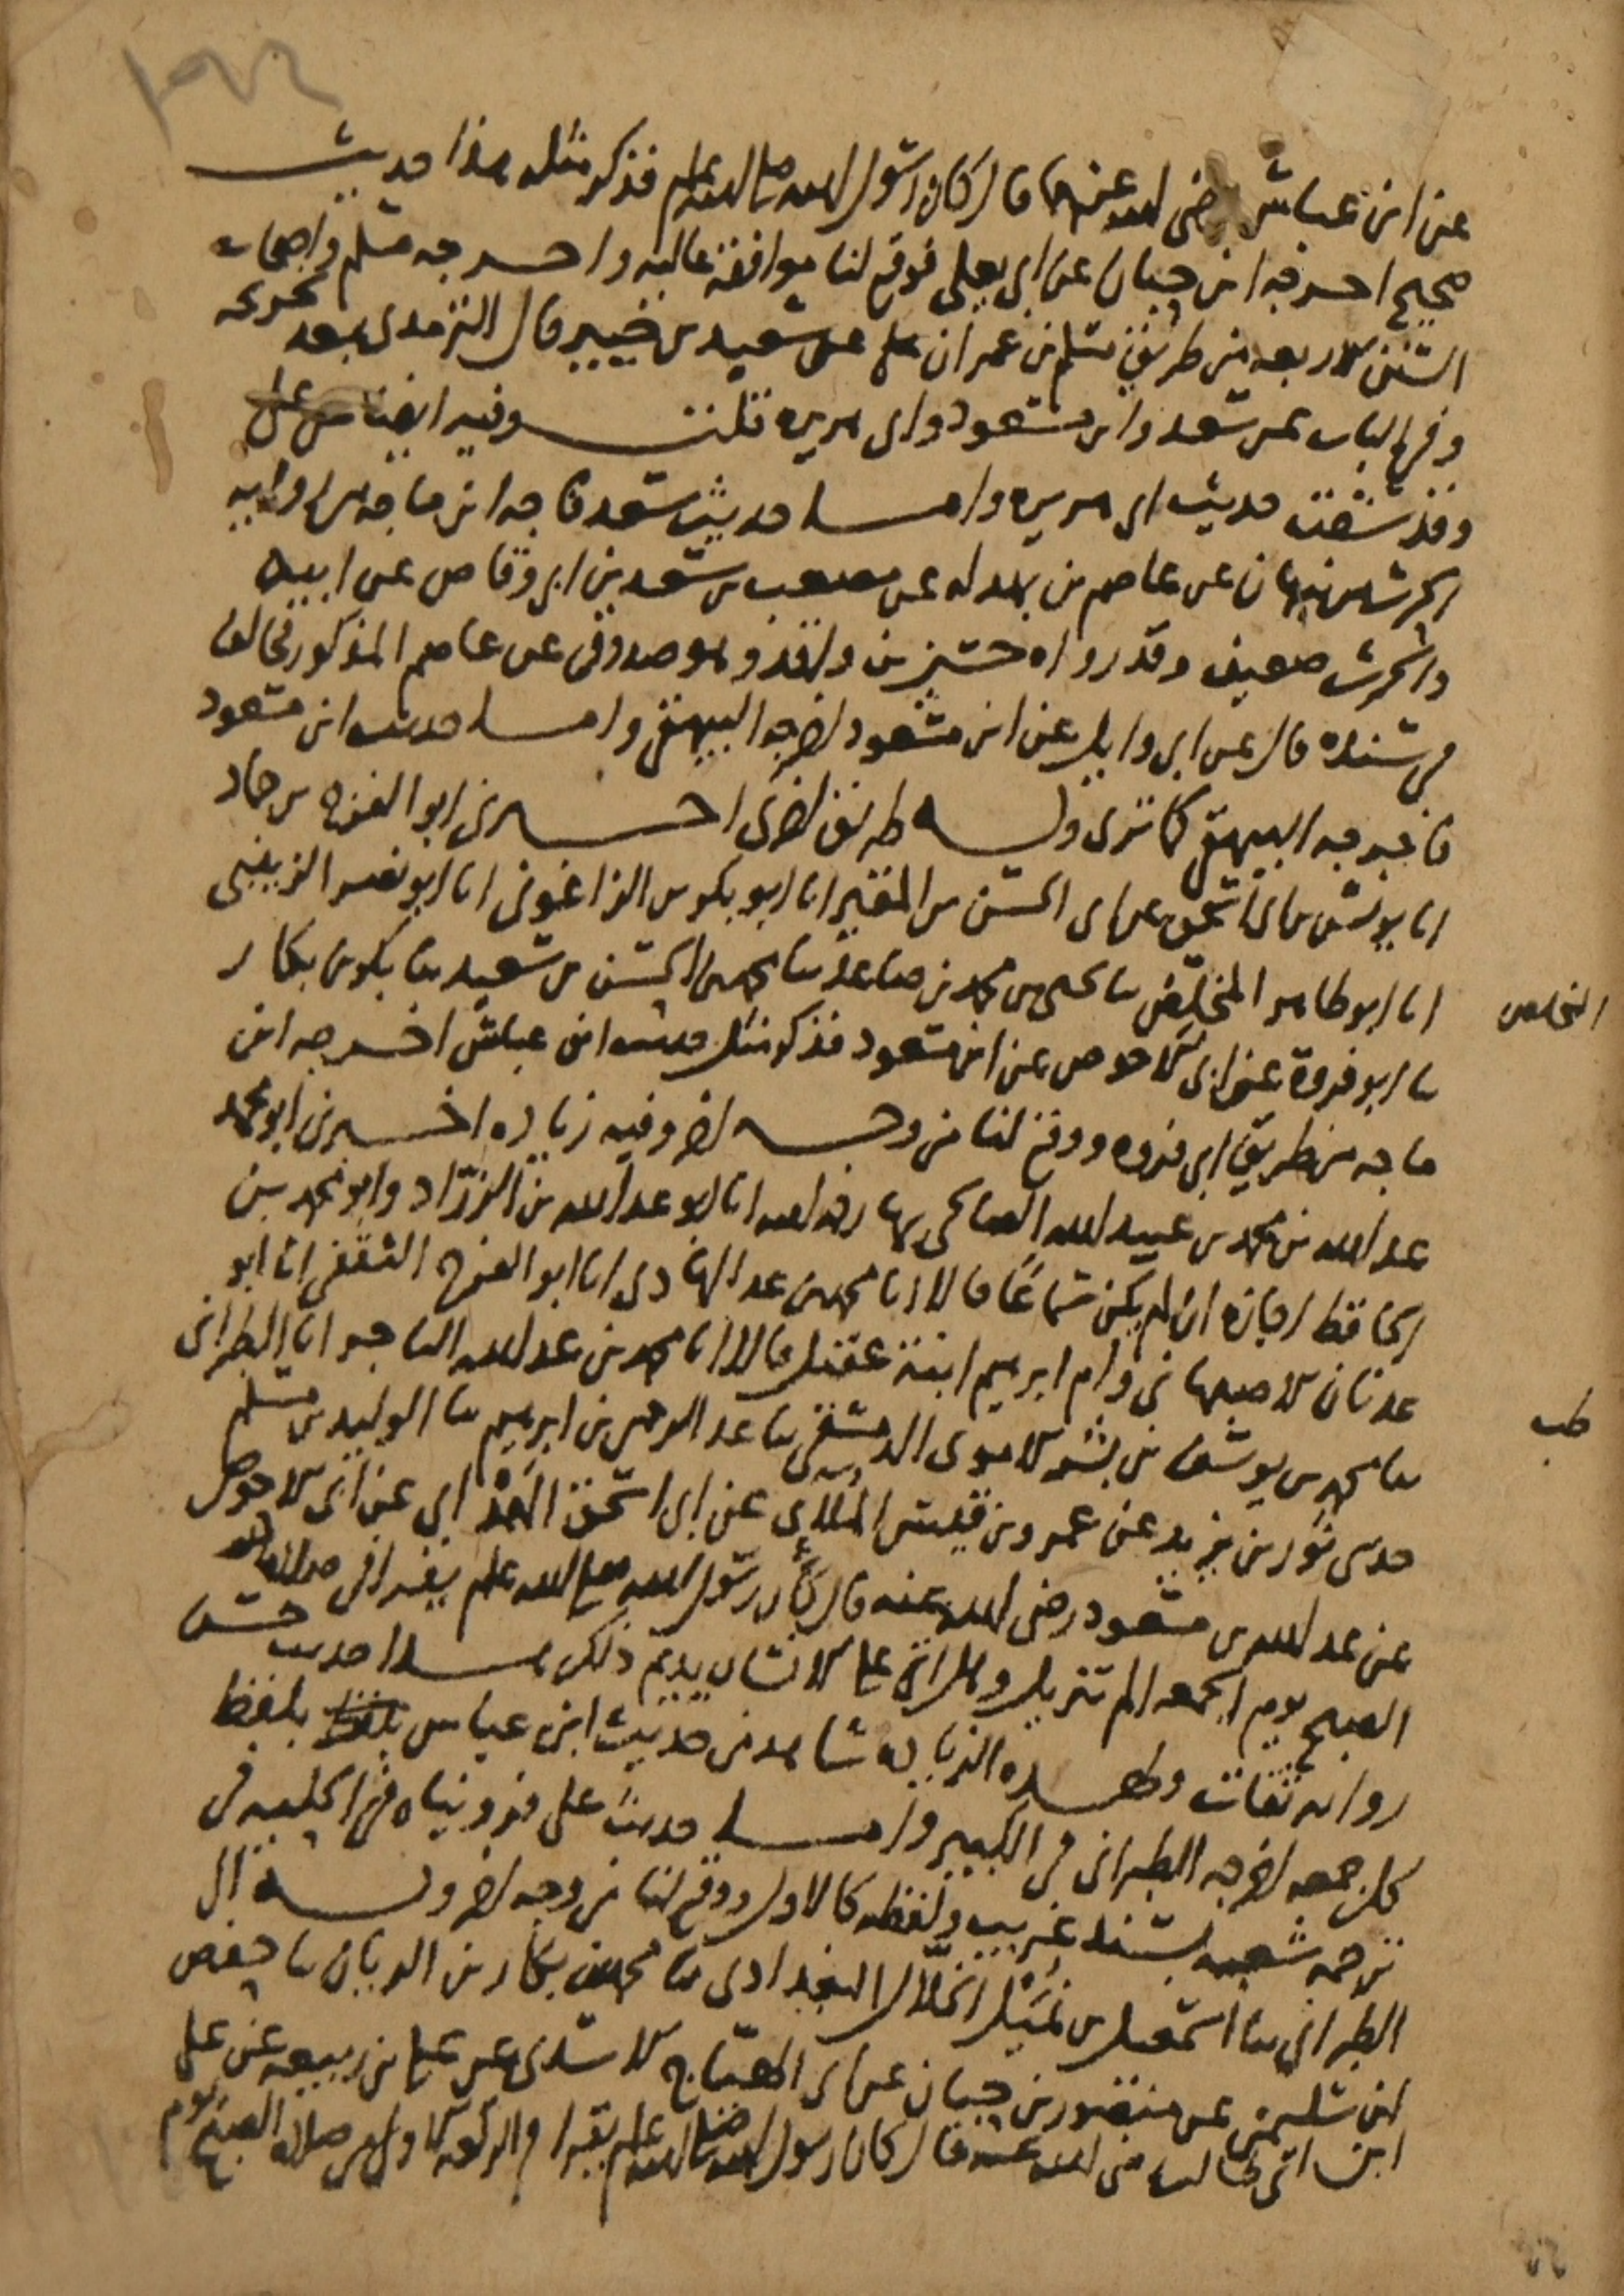 عن ابن عباس رضى الله عنهما قال كان رسول الله صلى الله عليه وسلم فذكر مثله هذا حديث
صحيح اخرجه ابن حبان عن ابى يعلى فوقع لنا موافقة عالية واخرجه مسلم واصحاب
السنن الاربعه من طريق مسلم بن عمران عن سعيد بن جبير قال الترمذى بعد تخريجه
وفى الباب عن سعد وابن مسعود وابى هريره قلت وفيه ايضا عن على
وقد سقت حديث ابى هريره واما حديث سعد فاخرجه ابن ماجه من رواية
الحرث بن نبهان عن عاصم بن بهدله عن مصعب بن سعد بن ابى وقاص عن ابيه
والحرث ضعيف وقد رواه حسين بن واقد وهو صدوق عن عاصم المذكور فخالف
فى سنده قال عن ابى وايل عن ابن مسعود اخرجه البيهقى واما حديث ابن مسعود
فاخرجه البيهقى كما ترى وله طريق اخرى اخبرنى ابو الفرج بن حماد
انا يونس بن ابى اسحق عن ابى الحسن بن المقير انا ابو بكر بن الزاغونى انا ابو نصر الزينبى
انا ابو طاهر المخلص ثنا يحيى بن محمد بن صاعد ثنا محمد بن الحسن بن سعيد ثنا بكر بن بكار
المخلص
ثنا ابو فروة عن ابى الاحوص عن ابن مسعود فذكر مثل حديث ابن عباس اخرجه ابن
ماجه من طريق ابى فروه ووقع لنا من وجه اخر وفيه زياده اخبرنى ابو محمد
عبد الله بن محمد بن عبيد الله الصالحى بها رحمه الله انا ابو عبد الله بن الزراد وابو محمد بن
الحافظ اجازه ان لم يكن سماعا قالا انا محمد بن عبد الهادى انا ابو الفرج الثقفى انا ابو
عدنان الاصبهانى وام ابرهيم ابنة عقيل قالا انا محمد بن عبد الله التاجر انا الطبرانى
طب
ثنا محمد بن يوسف بن بشر الاموى الدمشقى ثنا عبد الرحمن بن ابرهيم ثنا الوليد بن مسلم
حدثنى ثور بن يزيد عن عمرو بن قيس الملائى عن ابى اسحق الهمدانى عن ابى الاحوص
عن عبد الله بن مسعود رضى الله عنه قال كان رسول الله صلى الله عليه وسلم يقرا فى صلاة
الصبح يوم الجمعه الم تنزيل وهل اتى على الانسان يديم ذلك هذا حديث حسن
رواته ثقات ولهذه الزياده شاهد من حديث ابن عباس بلفظ بلفظ
كل جمعه اخرجه الطبرانى فى الكبير واما حديث على فرويناه فى الحليه فى
ترجمة شعبه بسند غريب ولفظه كالاول ووقع لنا من وجه اخر وبه الى
الطبرانى ثنا اسمعيل بن نميل الخلال البغدادى ثنا محمد بن بكار بن الريان ثنا حفص
ابن سليمن عن منصور بن حبان عن ابى الهياج الاسدى عن على بن ربيعه عن على
ابن ابى طالب رضى الله عنه قال كان رسول الله صلى الله عليه وسلم يقرا فى الركعه الاولى من صلاة الصبح يوم